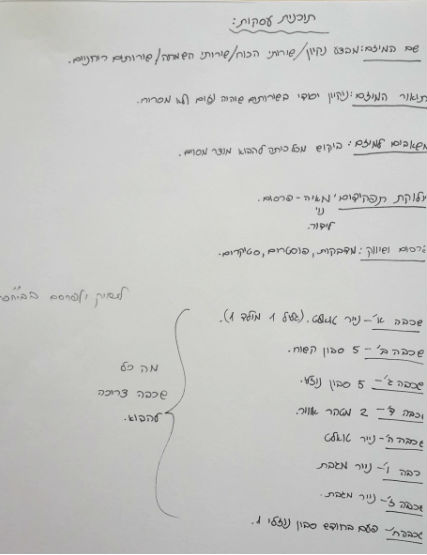 תוכנית עסקית:
שם המיזם: מבצע נקיון/שירותי הכוח/שירותי השמחה/שירותים ריחניים.
תיאור המיזם: ניקיון יסודי בשירותים שיהיה נעים ולא מסריח.
משאבים למיזם: ביקוש מכל כיתה להביא מוצר מסוים.
חלוקת תפקידים: מאיה - פרסום.
נוי
לידור.
פרסום ושיווק: מדבקות, פוסטרים, סטיקרים.
לשווק ולפרסם בביה"ס
שכבה א'- נייר טואלט. (גליל 1 מילד 1).
שכבה ב'- 5 סבון קשוח.
שכבה ג'- 5 סבון נוזלי.
שכבה ד'- 2 מטהר אוויר.
שכבה ה'- נייר טואלט
שכבה ו'- נייר מגבת
שכבה ז'- נייר מגבת.
שכבה ח'- פעם בחודש סבון נוזלי 1.
מה כל
שכבה צריכה
להביא.